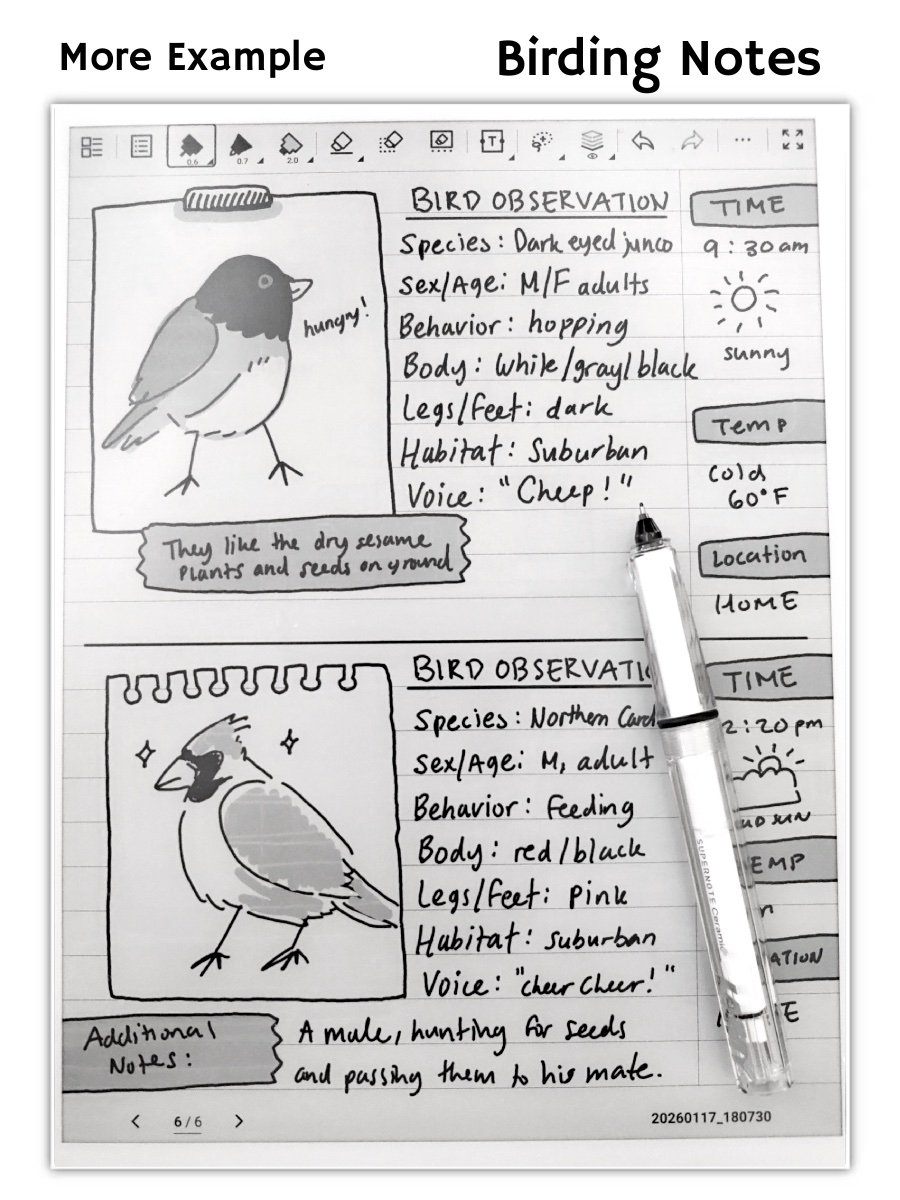 More Example
Birding Notes
0.6
0.7
2.0
T
BIRD OBSERVATION
Species: Dark eyed junco
Sex/Age: M/F adults
Behavior: hopping
Body: White/gray/black
Legs/Feet: dark
Habitat: Suburban
Voice: "Cheep!"
hungry!
They like the dry sesame
plants and seeds on ground
TIME
9:30am
sunny
Temp
Cold
60°F
Location
HOME
BIRD OBSERVATI
Species: Northern Card
Sex/Age: M, adult
Behavior: Feeding
Body: red/black
Legs/Feet: Pink
Habitat: suburban
Voice: "cheer Cheer!"
TIME
2:20pm
SUN
EMP
ATION
E
SUPERNOTE Ceramic
Additional
Notes:
A male, hunting for seeds
and passing them to his mate.
6/6
20260117_180730